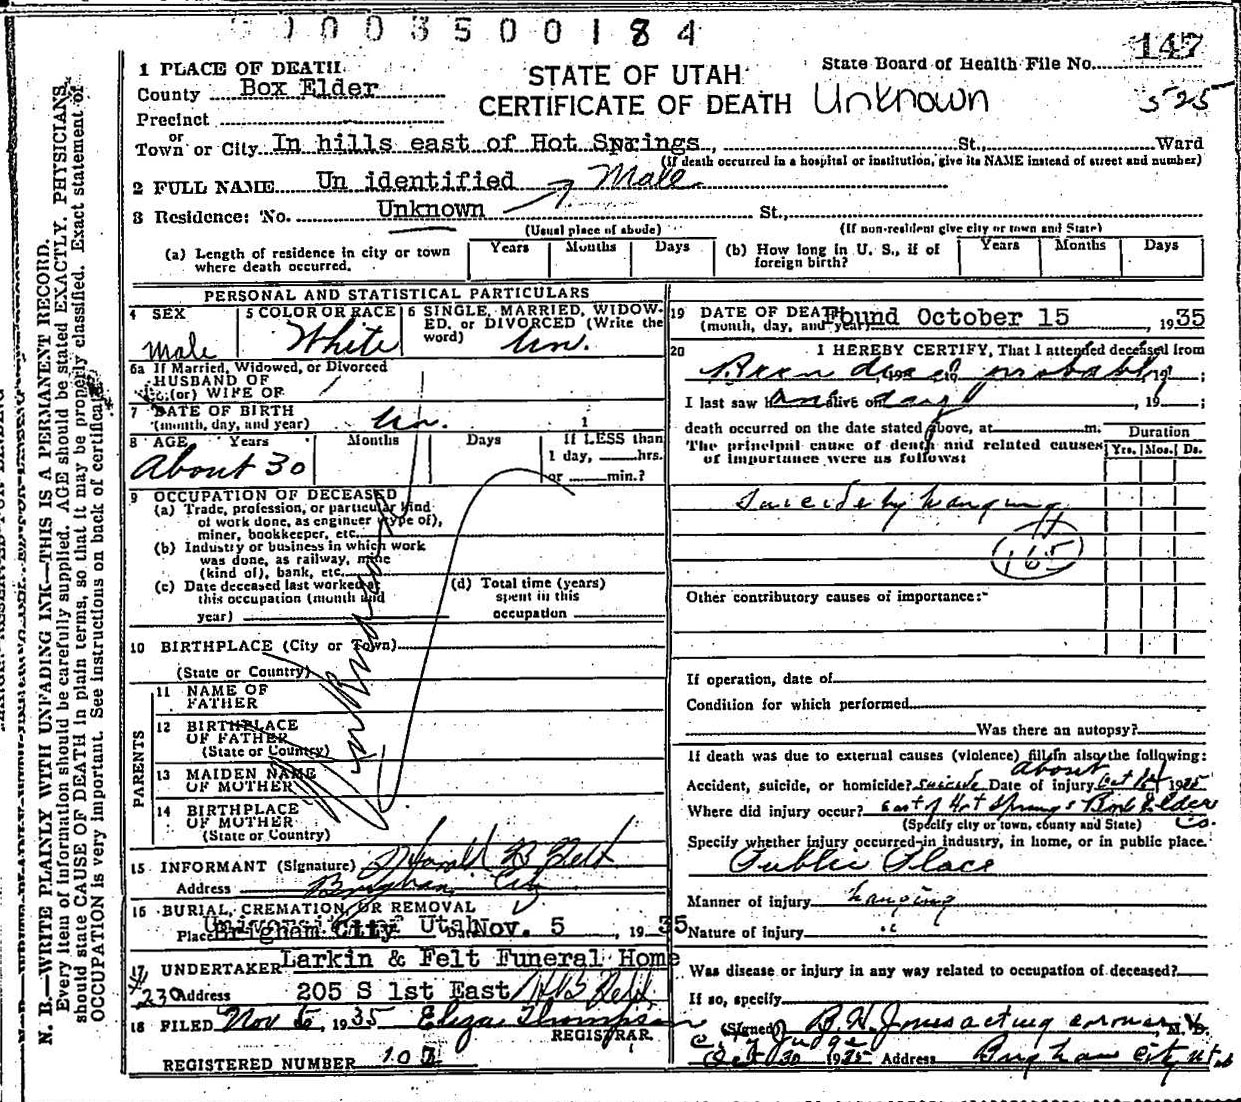 003500184
147
1 PLACE OF DEATH
STATE OF UTAH
State Board of Health File No.
County Box Elder
CERTIFICATE OF DEATH
Unknown
525
Precinct
or
Town or City In hills east of Hot Springs, St., Ward
(If death occurred in a hospital or institution, give its NAME instead of street and number)
2 FULL NAME Un identified Male
3 Residence: No. Unknown St.,
(Usual place of abode) (If non-resident give city or town and State)
(a) Length of residence in city or town where death occurred. Years Months Days (b) How long in U. S., if of foreign birth? Years Months Days
PERSONAL AND STATISTICAL PARTICULARS
4 SEX
Male
5 COLOR OR RACE
White
6 SINGLE, MARRIED, WIDOW-
ED, or DIVORCED (Write the
word) Un.
6a If Married, Widowed, or Divorced
HUSBAND OF
(or) WIFE OF
7 DATE OF BIRTH
(month, day, and year) Un.
8 AGE Years Months Days If LESS than
1 day, hrs.
or min.?
About 30
9 OCCUPATION OF DECEASED
(a) Trade, profession, or particular kind
of work done, as engineer (type of),
miner, bookkeeper, etc.
(b) Industry or business in which work
was done, as railway, mine
(kind of), bank, etc.
(c) Date deceased last worked at
this occupation (month and
year)
(d) Total time (years)
spent in this
occupation
Unknown
10 BIRTHPLACE (City or Town)
(State or Country)
PARENTS
11 NAME OF
FATHER
12 BIRTHPLACE
OF FATHER
(State or Country)
13 MAIDEN NAME
OF MOTHER
14 BIRTHPLACE
OF MOTHER
(State or Country)
15 INFORMANT (Signature) Harold B Felt
Address Brigham City
16 BURIAL, CREMATION, OR REMOVAL
Place Brigham City Utah Date Nov. 5, 1935
17 UNDERTAKER Larkin & Felt Funeral Home
#230 Address 205 S 1st East HB Felt
18 FILED Nov 5, 1935 Eliza Thompson
REGISTRAR.
REGISTERED NUMBER 107
19 DATE OF DEATH
(month, day, and year) Found October 15, 1935
20 I HEREBY CERTIFY, That I attended deceased from
Been dead probably
I last saw h alive on , 19 ;
one day
death occurred on the date stated above, at m.
The principal cause of death and related causes
of importance were as follows:
Duration
Yrs. Mos. Ds.
Suicide by hanging
165
Other contributory causes of importance:
If operation, date of
Condition for which performed
Was there an autopsy?
If death was due to external causes (violence) fill in also the following:
Accident, suicide, or homicide? Suicide Date of injury about Oct 14 1935
Where did injury occur? East of Hot Springs Box Elder Co.
(Specify city or town, county and State)
Specify whether injury occurred in industry, in home, or in public place.
Public Place
Manner of injury hanging
Nature of injury "
Was disease or injury in any way related to occupation of deceased?
If so, specify
(Signed) B. H. Jones acting coroner M. D.
City Judge
Oct 30 1935 Address Brigham City Utah
N. B.—WRITE PLAINLY WITH UNFADING INK—THIS IS A PERMANENT RECORD.
Every item of information should be carefully supplied. AGE should be stated EXACTLY. PHYSICIANS
should state CAUSE OF DEATH in plain terms, so that it may be properly classified. Exact statement of
OCCUPATION is very important. See instructions on back of certificate.